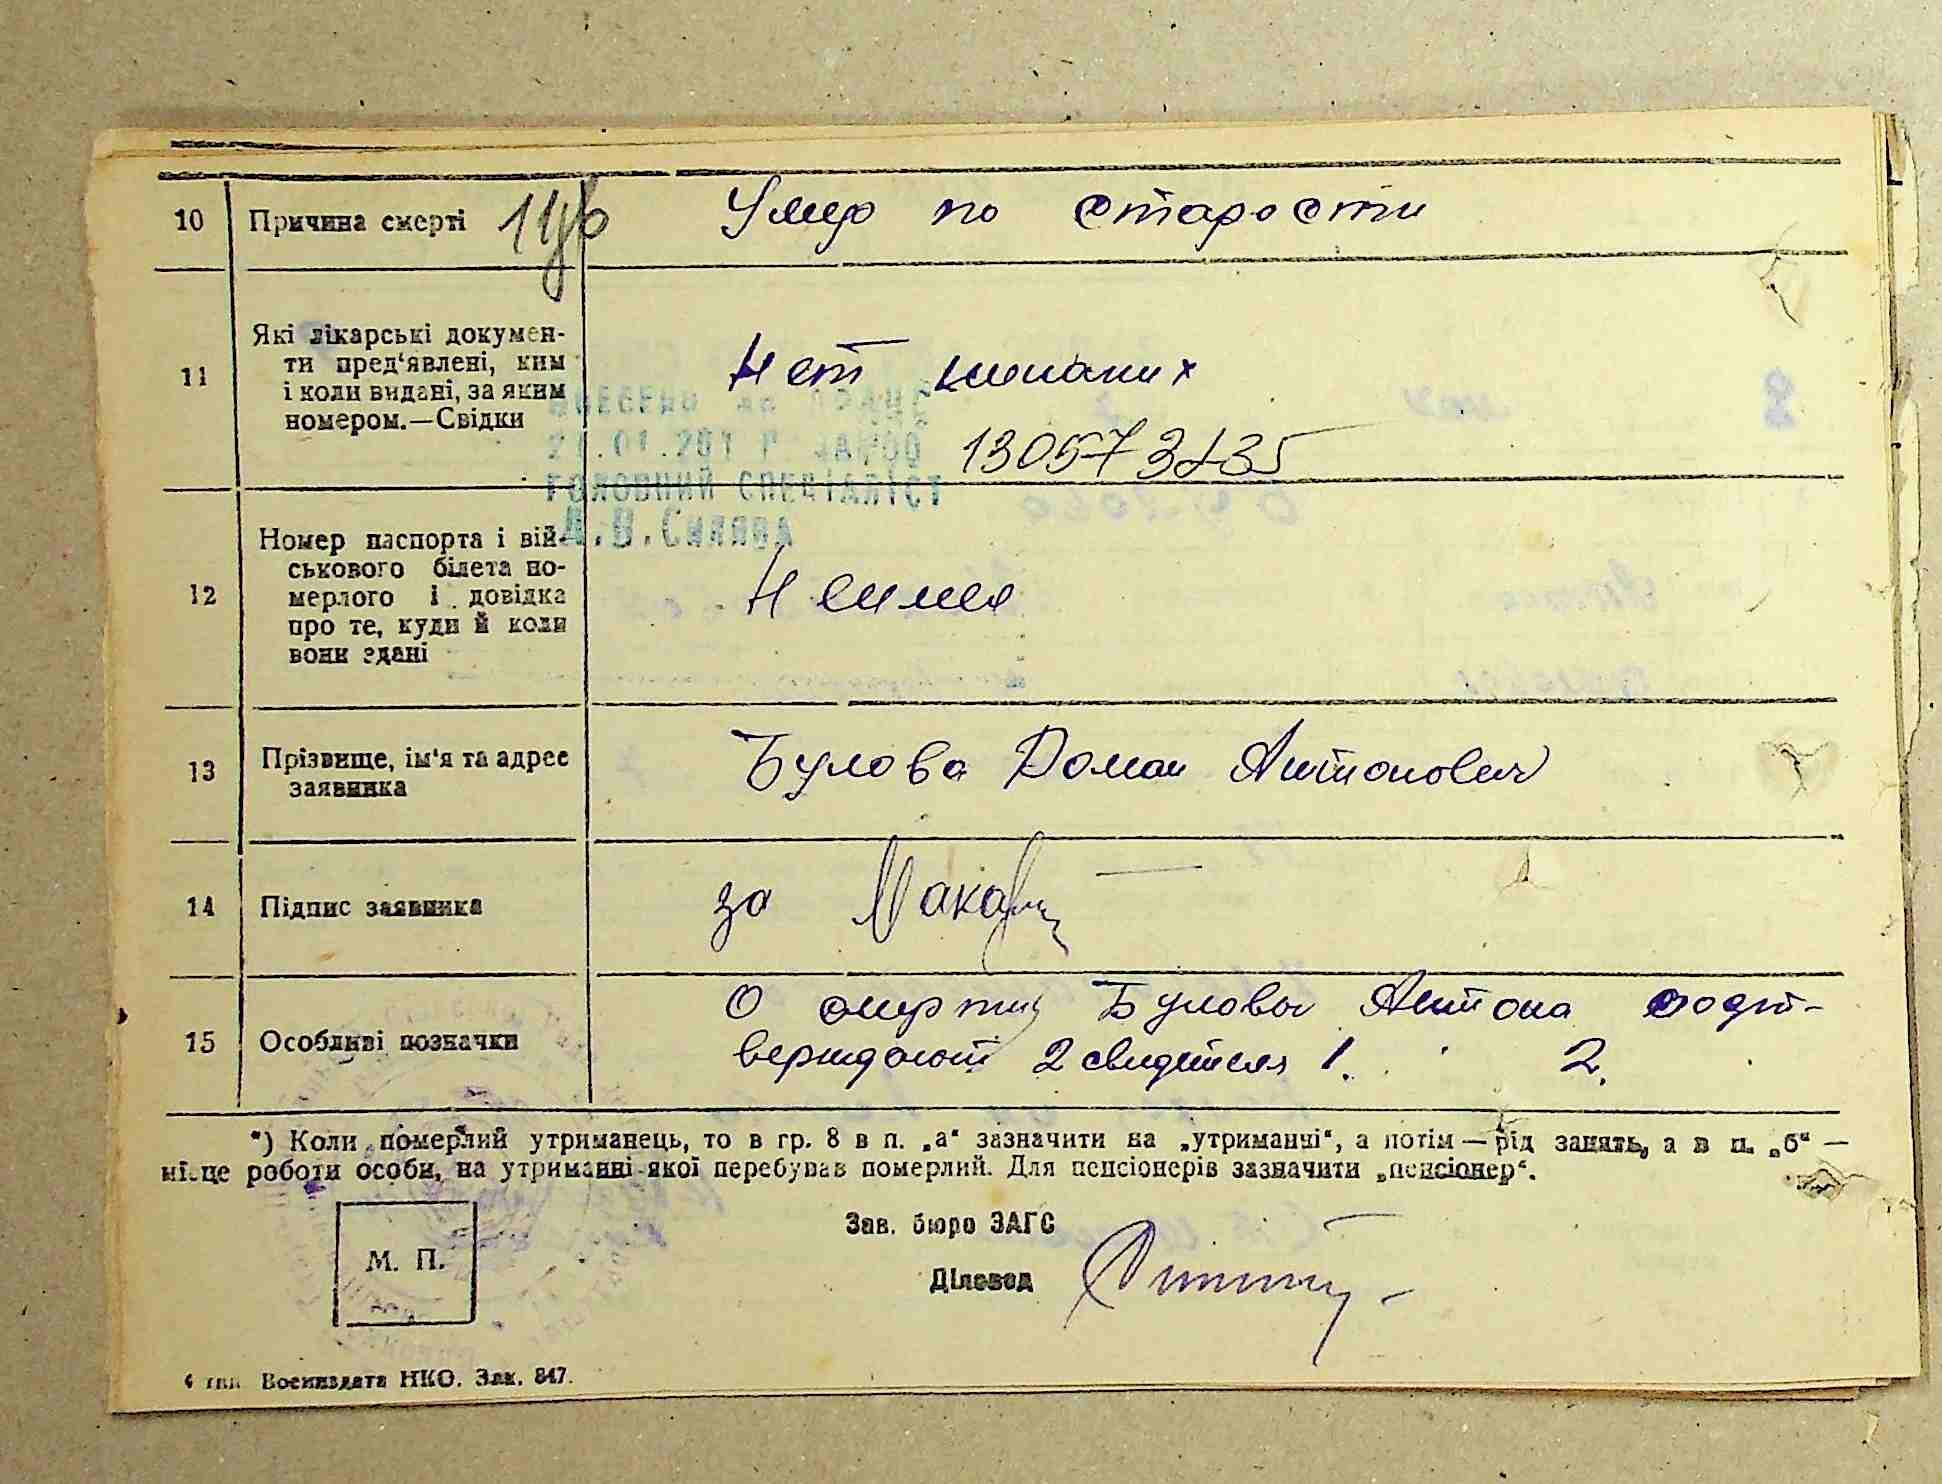 10 Причина смерті Умер по старости
11 Які лікарські докумен-
ти пред'явлені, ким
і коли видані, за яким
номером.—Свідки
Нет никаких
ВНЕСЕНО до ДРАЦС
ГОЛОВНИЙ СПЕЦІАЛІСТ
12 Номер паспорта і вій-
ськового білета по-
мерлого і довідка
про те, куди й коли
вони здані
Не имел
13 Прізвище, ім'я та адрес
заявника
Булова Роман Антонович
14 Підпис заявника за
15 Особливі позначки
О смерти Буловы Антона подт-
верждают 2 свидетеля 1. 2.
*) Коли померлий утриманець, то в гр. 8 в п. „а" зазначити на „утриманні", а потім — рід занять, а в п. „б" —
місце роботи особи, на утриманні якої перебував померлий. Для пенсіонерів зазначити „пенсіонер".
Зав. бюро ЗАГС
М. П.
Діловод
Воениздата НКО. Зак. 847.